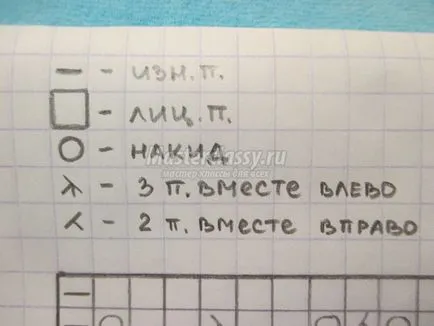 — - изн. п.
□ - лиц. п.
○ - накид
masterclassy.ru
мастер классы для всех
⋋ - 3 п. вместе влево
⋌ - 2 п. вместе вправо